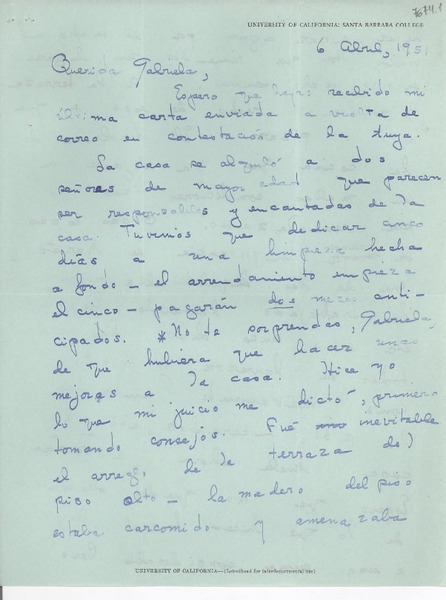 7674.1
UNIVERSITY OF CALIFORNIA: SANTA BARBARA COLLEGE
6 Abril, 1951
Querida Gabriela,
Espero que hayas recibido mi
última carta enviada a vuelta de
correo en contestación de la tuya.
La casa se alquiló a dos
señores de mayor edad que parecen
ser responsables y encantadas de la
casa. Tuvimos que dedicar cinco
días a una limpieza hecha
a fondo - el arrendamiento empieza
el cinco - pagarán dos meses anti-
cipados. *No te sorprendas, Gabriela,
de que hubiera que hacer unas
mejoras a la casa. Hice yo
lo que mi juicio me dictó, primero
tomando consejos. Fué inevitable
el arreglo de la terraza del
piso alto - la madera del piso
estaba carcomido y amenazaba
UNIVERSITY OF CALIFORNIA—(Letterhead for interdepartmental use)